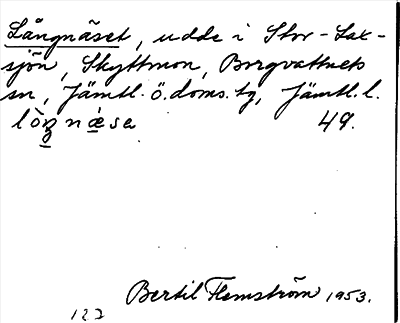 Långnäset, udde i Stor-Lax-
sjön, Skyttmon, Borgvattnets
sn, Jämtl. ö. doms. tg, Jämtl. l.
lòŋnæ̀sə 49.
Bertil Flemström 1953.
122